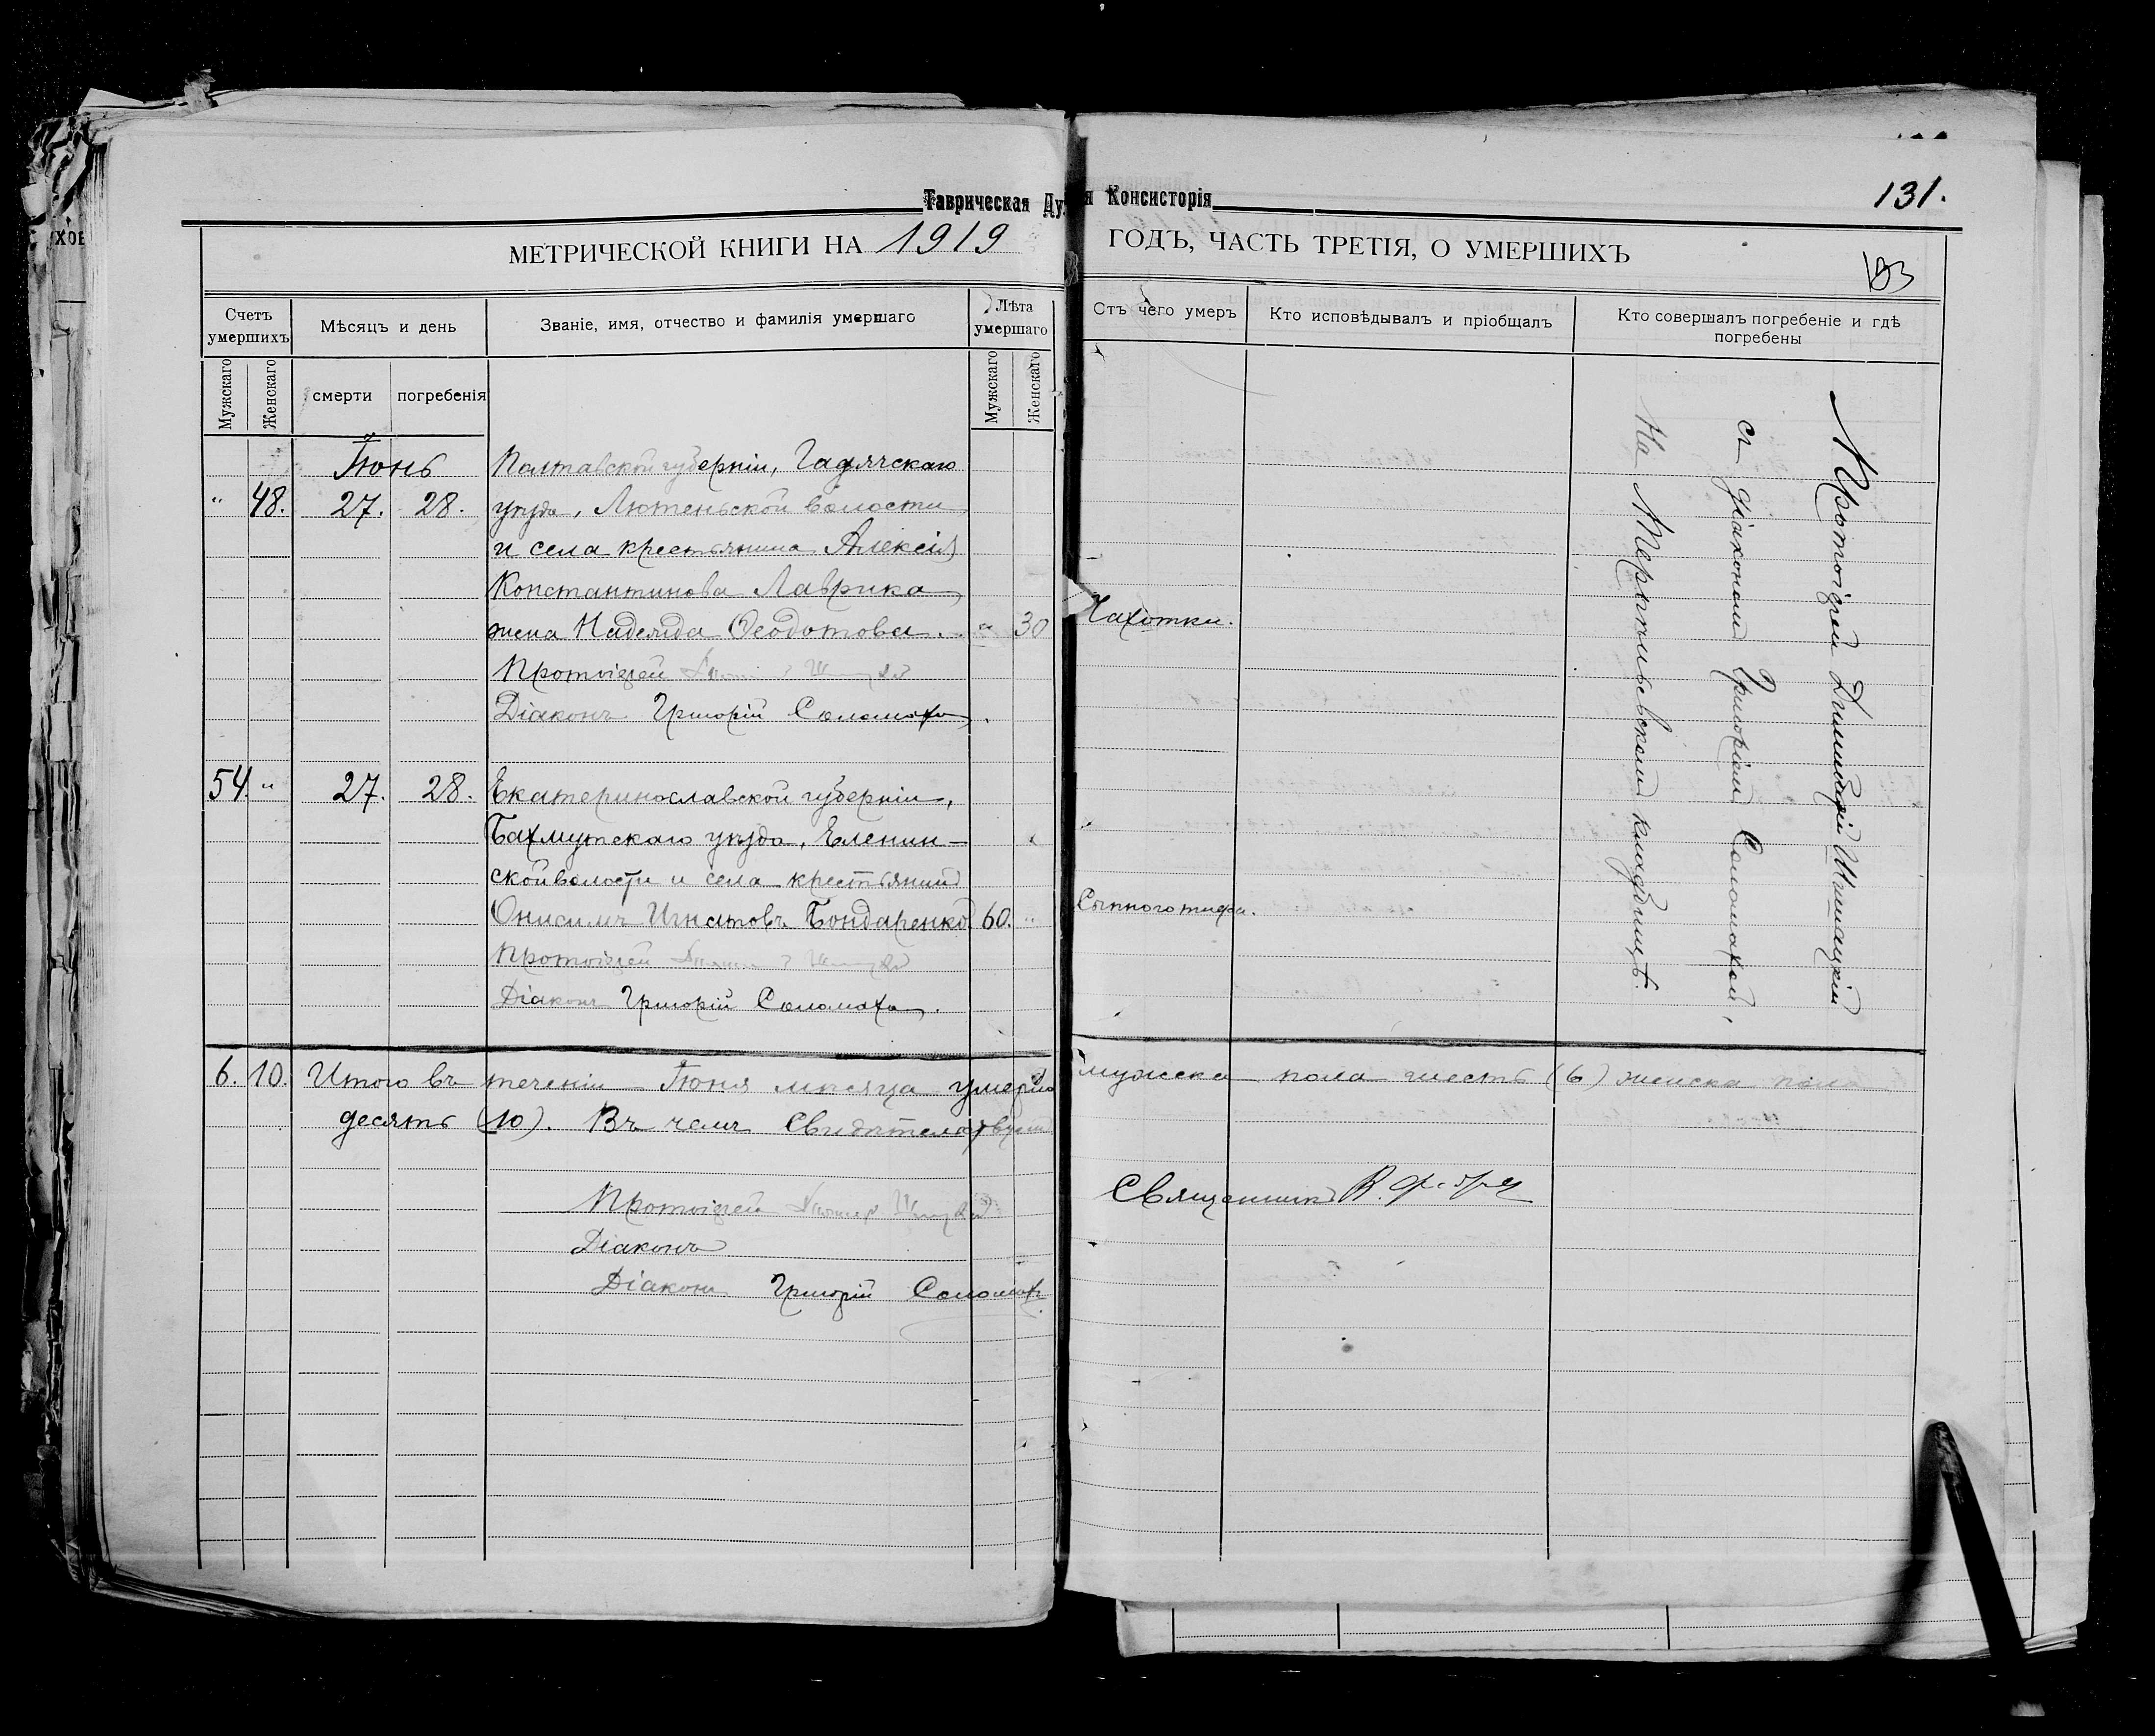 Таврическая Ду
я Консисторія
131.
МЕТРИЧЕСКОЙ КНИГИ НА 1919
ГОДЪ, ЧАСТЬ ТРЕТІЯ, О УМЕРШИХЪ
193
Счетъ умершихъ
Мѣсяцъ и день
Званіе, имя, отчество и фамилія умершаго
Лѣта умершаго
Отъ чего умеръ
Кто исповѣдывалъ и пріобщалъ
Кто совершалъ погребеніе и гдѣ погребены
Мужскаго
Женскаго
смерти
погребенія
Мужскаго
Женскаго
Іюнь
Полтавской губерніи, Гадячскаго
" 48. 27. 28. уѣзда, Лютеньской волости
и села крестьянина Алексія
Константинова Лаврика
жена Надежда Ѳеодотова. " 30 Чахотки.
Протоіерей
Діаконъ Григорій Соломаха.
54. " 27. 28. Екатеринославской губерніи,
Бахмутскаго уѣзда, Еленин-
ской волости и села крестьянинъ
Онисимъ Игнатовъ Бондаренко 60. " Сыпного тифа.
Протоіерей
Діаконъ Григорій Соломаха.
Протоіерей Димитрій Игнацкій
съ діакономъ Григоріемъ Соломахой,
На Мерпильевскомъ кладбищѣ.
6. 10. Итого въ теченіи Іюня мѣсяца умерло мужска пола шесть (6) женска пола
десять (10). Въ чемъ свидѣтельствуемъ
Протоіерей
Священникъ В.
Діаконъ
Діаконъ Григорій Соломаха